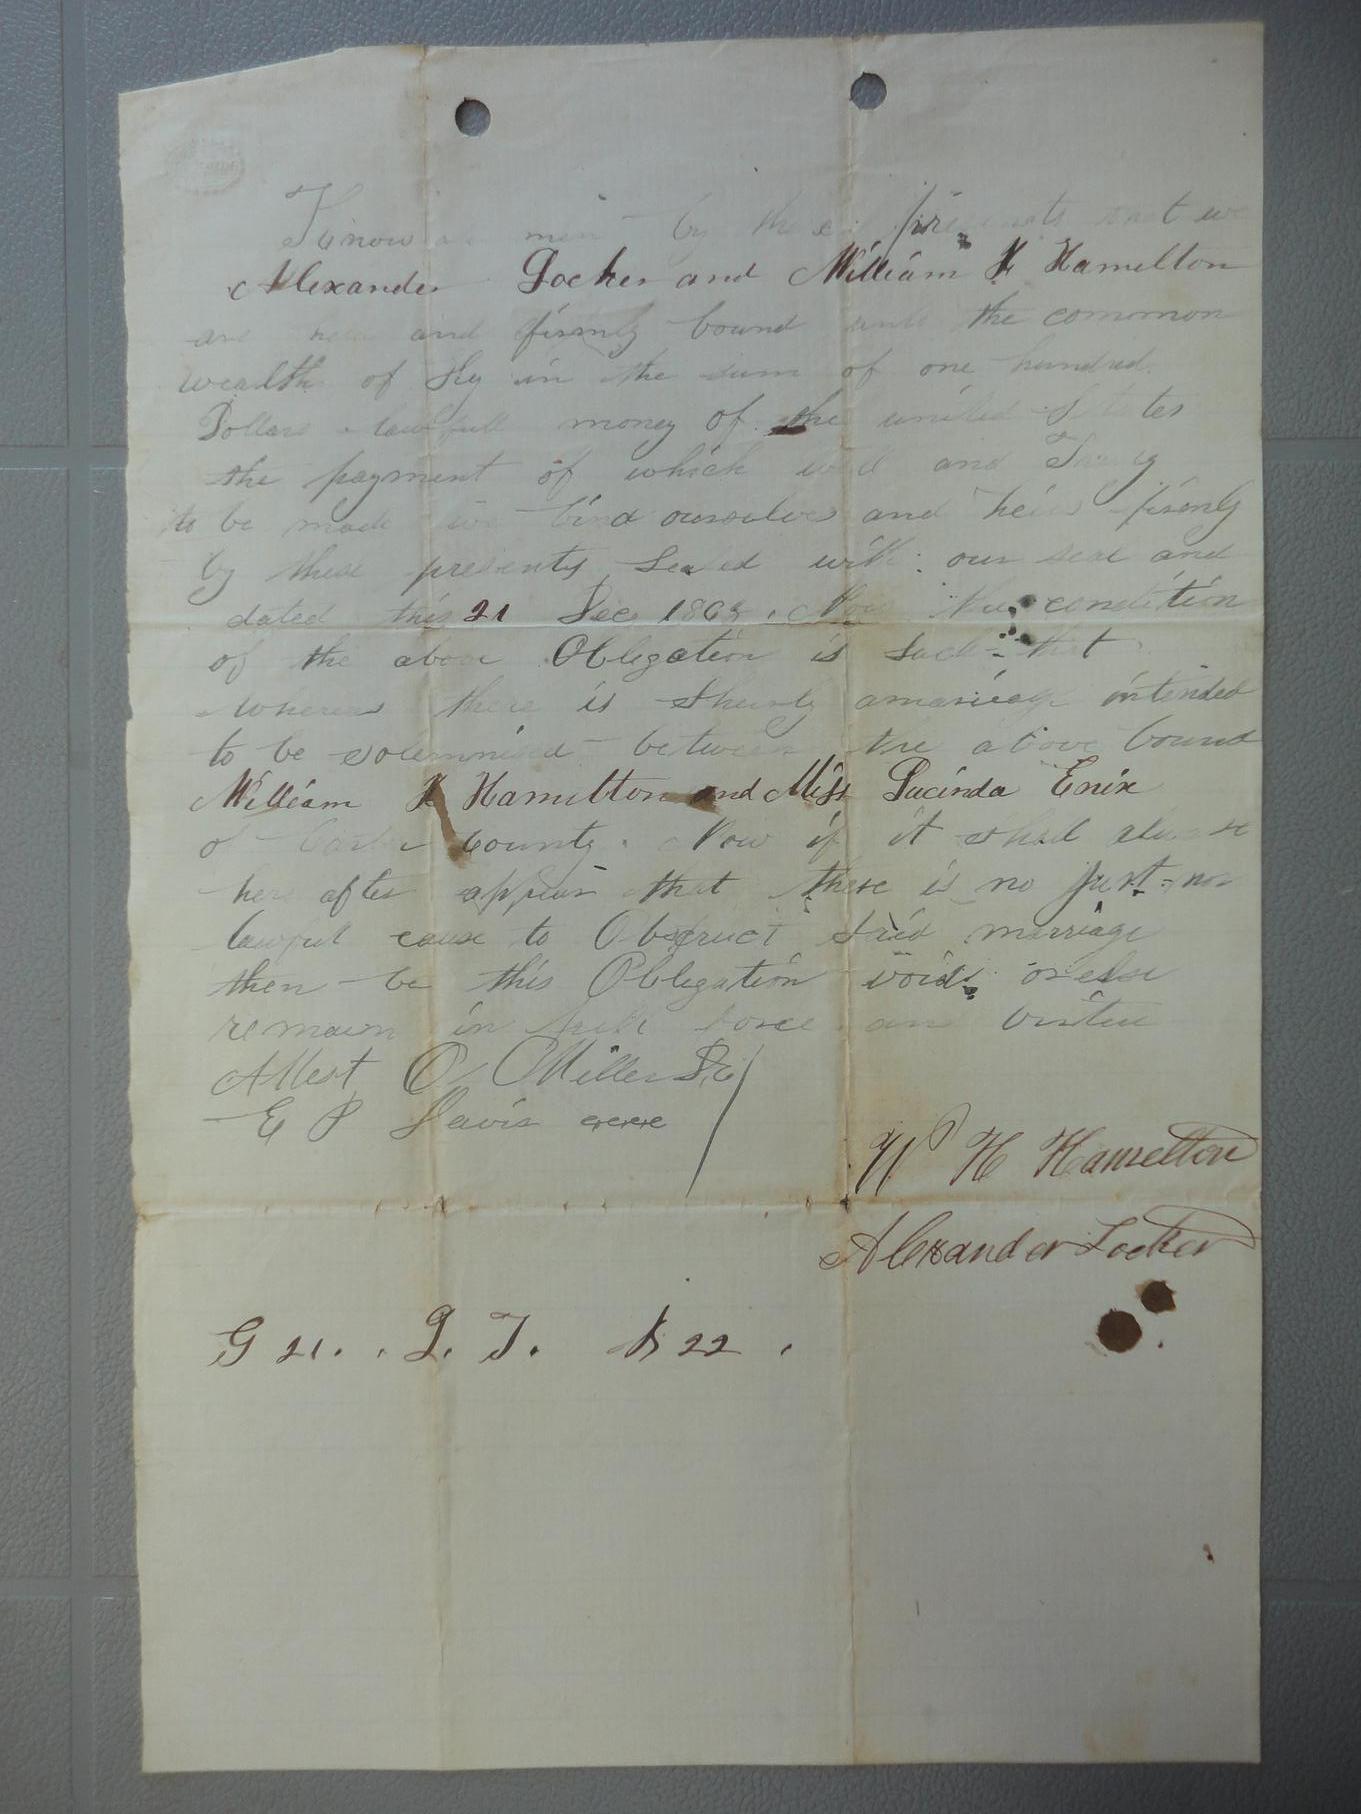 Know all men by these presents that we
Alexander Locker and William H Hamelton
are held and firmly bound unto the common
wealth of Ky in the sum of one hundred
Dollars lawfull money of the united States
the payment of which well and Truly
to be made we bind ourselves and heirs firmly
by these presents Sealed with our seal and
dated this 21 Dec 186 . Now the condition
of the above Obligation is such that
whereas there is Shortly amarriage intended
to be solemnised between the above bound
William H Hamilton and Miss Lucinda Enix
of Carter County . Now if it shall
here after appear that there is no just nor
lawfull cause to Obstruct said marriage
then be this Obligation void or else
remain in full force an virtue
Attest O Miller
E P Davis
W H Hamelton
Alexander Locker
G 21 . . L. T. B 22 .